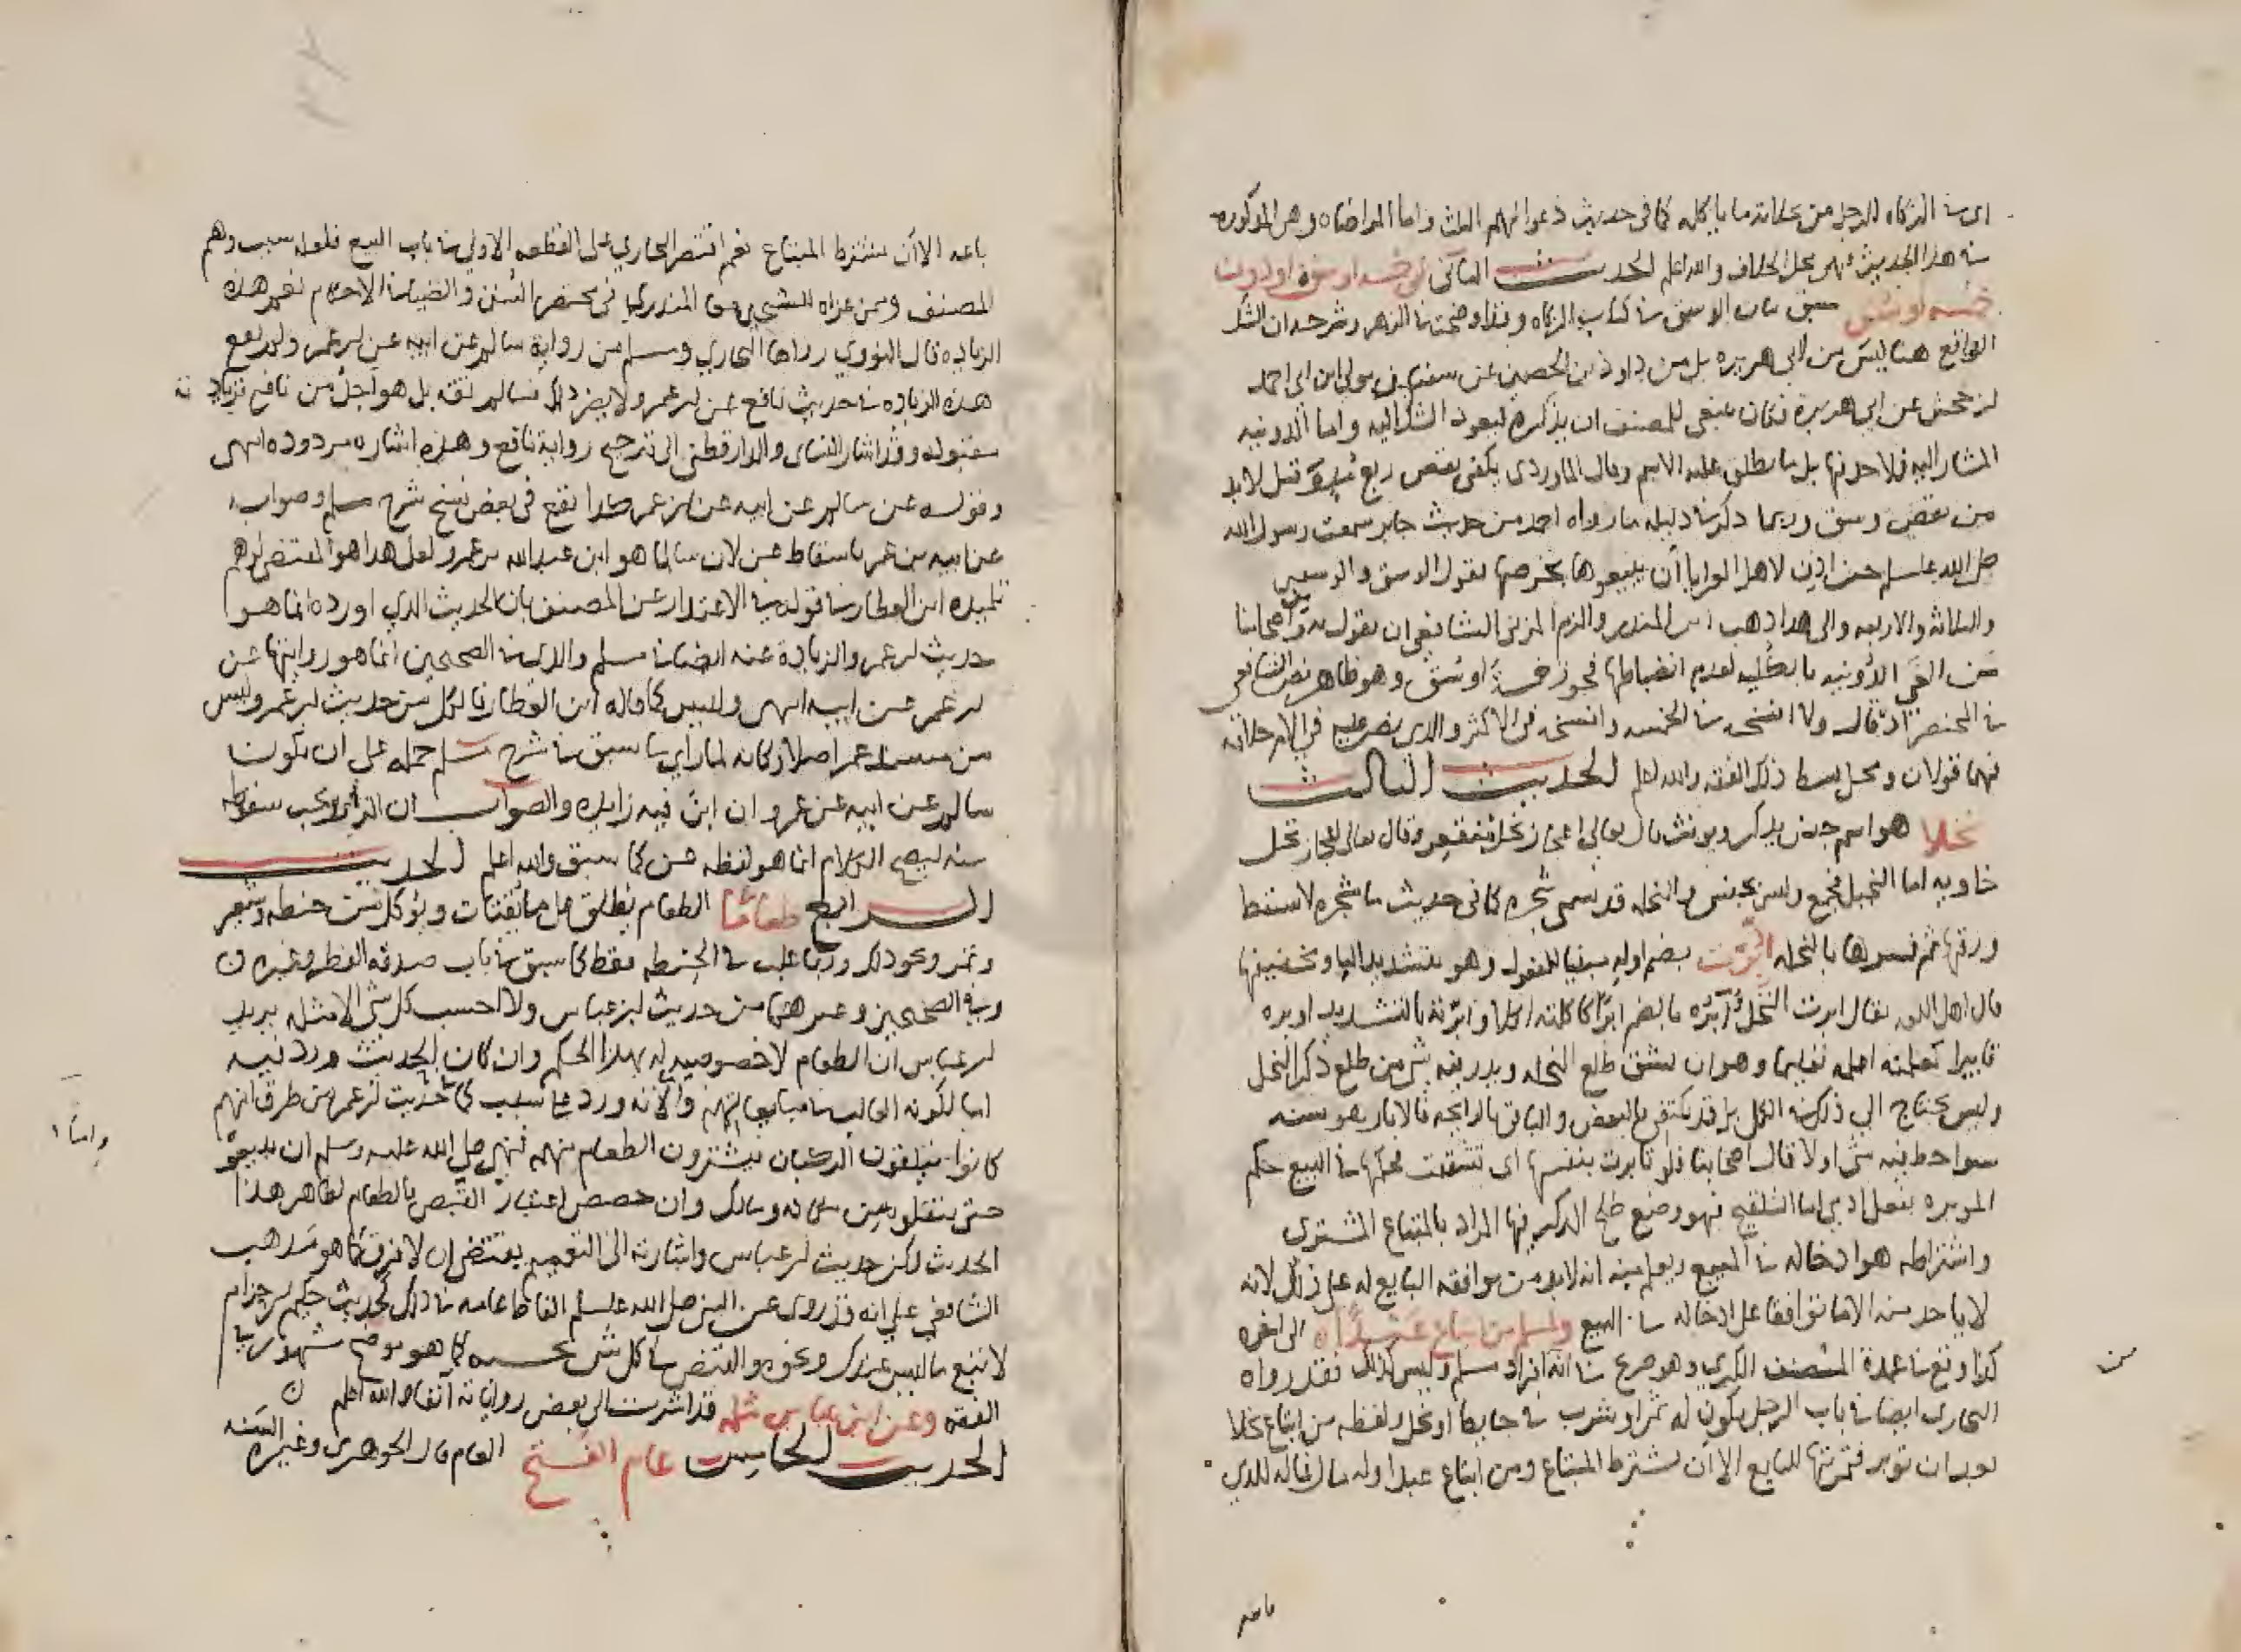 الزكاه للرجل من ما ياكله كما في حديث دعوا لهم الثلث واما المواضاه وهي المذكوره
في هذا الحديث فهي محل الخلاف والله اعلم الحديث الثاني في خمسه اوسق او دون
خمسه اوسق سبق بيان الاوسق في كتاب الزكاه وقد اوضحته في الزهر وشرحه ان الشك
الواقع هنا ليس من ابي هريره بل من داود بن الحصين عن سفين مولى ابن ابي احمد
بن جحش عن ابي هريرة فكان ينبغي للمصنف ان يذكره ليعود الشك اليه واما الدونيه
المشار اليه فلا حد لها بل ما يطلق عليه الاسم وقال الماوردي يكفي نقص ربع قيل لا بد
من نقص وسق وربما ذكر في دليله ما رواه احمد من حديث جابر سمعت رسول الله
صلى الله عليه وسلم حين اذن لاهل العرايا أن يبيعوها بخرصها يقول الوسق والوسقين
والثلاثة والاربعه والى هذا ذهب ابن المنذر والزم المزني الشافعي ان يقول به ومن اصحابنا
من الغى الدونيه بالكليه لعدم انضباطها فجوز خمسة اوسق وهو ظاهر نص الشافعي
في المختصر اذ قال ولا افسخه في الخمسه وافسخه في الاكثر والذي نص عليه في الام خلافه
فهما قولان ومحل بسط ذلك الفقه والله اعلم الحديث الثالث
نخلا هو اسم جنس يذكر ويونث قال تعالى اعجاز نخل منقعر وقال تعالى اعجاز نخل
خاويه اما النخيل فجمع وليس بجنس والنخله قد تسمى شجره كما في حديث ما شجره لا يسقط
ورقها ثم فسرها بالنخله أبرت بضم اوله مبنيا للمفعول وهو بتشديد البا وتخفيفها
قال اهل اللغه يقال ابرت النخل آبره بالضم ابرا كاكلته اكلا وابرته بالتشديد اوبره
تابيرا كعلمته اعلمه تعليما وهو ان يشق طلع النخله ويذر فيه شي من طلع ذكر النخل
وليس يحتاج الى ذلك في الكل بل قد يكتفى بالبعض والباقي بالرائحه فالابار هو شقه
سوا حط فيه شي اولا قال اصحابنا فلو تابرت بنفسها اي تشققت فحكمها في البيع حكم
الموبره بفعل ادمي اما التلقيح فهو وضع طلع الذكر فيها المراد بالمبتاع المشتري
واشتراطه هو ادخاله في المبيع ويعلم منه انه لابد من موافقه البايع له على ذلك لانه
لا ياخذ منه الا ما توافقا على ادخاله في البيع ولمسلم من ابتاع عبدا الى اخره
كذا وقع في عمدة المصنف الكبرى وهو صريح في انه افراد مسلم وليس كذلك فقد رواه
البخاري ايضا في باب الرجل يكون له ممر او شرب في حايط او نخل ولفظه من ابتاع نخلا
بعد ان توبر فثمرتها للبايع الا أن يشترط المبتاع ومن ابتاع عبدا وله مال فماله للذي
باعه الا أن يشترط المبتاع نعم اقتصر البخاري على القطعه الاولى في باب البيع فلعله سبب وهم
المصنف وممن عزاه للشيخين المنذري في مختصر السنن والضيا في الاحكام نعم هذه
الزياده قال النووي رواها البخاري ومسلم من رواية سالم عن ابيه عن ابن عمر ولم تقع
هذه الزياده في حديث نافع عن ابن عمر ولا يضر ذلك فسالم ثقه بل هو اجل من نافع فزيادته
مقبوله وقد اشار النسائي والدارقطني الى ترجيح رواية نافع وهذه اشاره مردوده انتهى
وقوله عن سالم عن ابيه عن ابن عمر كذا يقع في بعض نسخ شرح مسلم وصوابه
عن ابيه بن عمر باسقاط عن لان سالما هو ابن عبدالله بن عمر ولعل هذا هو المقتضي لوهم
تلميذه ابن العطار في قوله في الاعتذار عن المصنف بان الحديث الذي اورده انما هو
حديث ابن عمر والزيادة عنه ايضا في مسلم والذي في الصحيحين انما هو روايتها عن
ابن عمر عن ابيه انتهى وليس كما قاله ابن العطار فالكل من حديث ابن عمر وليس
من مسند عمر اصلا وكانه لما رأى ما سبق في شرح مسلم حمله على أن يكون
سالم عن ابيه عن عمر وان ابن فيه زايده والصواب ان الزايد عن يجب سقوطه
منه ليصح الكلام انما هو لفظه عن كما سبق والله اعلم الحديث
الرابع طعاما الطعام يطلق على ما يقتات ويؤكل من حنطه وشعير
وتمر ونحو ذلك وربما غلب في الحنطه فقط كما سبق في باب صدقه الفطر وغيره
وفي الصحيحين وغيرهما من حديث ابن عباس ولا احسب كل شي الا مثله يريد
ابن عباس ان الطعام لا خصوصيه له بهذا الحكم وان كان الحديث ورد فيه
اما لكونه الغالب في مبايعاتهم والا فانه ورد على سبب كما في حديث ابن عمر من طرق انهم
كانوا يتلقون الركبان فيشترون الطعام منهم فنهى صلى الله عليه وسلم ان يبيعوه
حتى ينقلوه من مكانه ومالك وان خصص اعتبار القبض بالطعام لظاهر هذا
الحديث لكن حديث ابن عباس واشارته الى التعميم يقتضي ان لا فرق كما هو مذهب
الشافعي على انه قد روى عن النبي صلى الله عليه وسلم الفاظا عامه في ذلك كحديث حكيم بن حزام
لا تبع ما ليس عندك ونحوه والقبض في كل شي بحسبه كما هو موضح مشهور في
الفقه وعن ابن عباس مثله قد اشرت الى بعض رواياته آنفا والله اعلم
الحديث الخامس عام الفتح العام قال الجوهري وغيره السنه